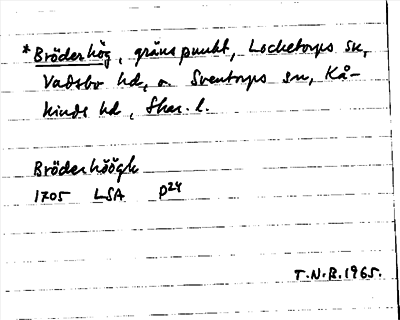 *Bröderhög, gränspunkt, Locketorps sn,
Vadsbo hd, o. Sventorps sn, Kå-
kinds hd, Skar. l.
Bröderhöögh
1705 LSA P24
T.N.B.1965.